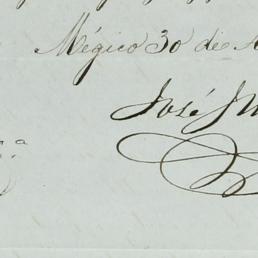 Mégico 30 de A
José M